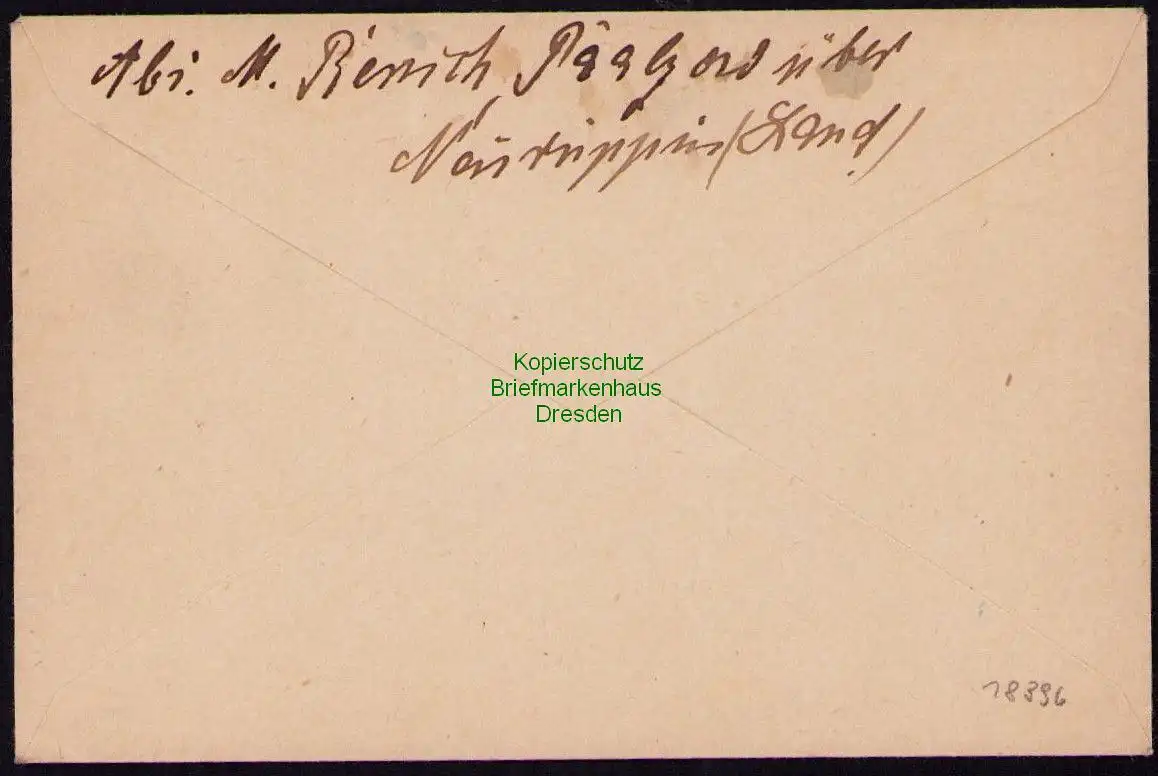 Abs. M. Riensch Päalgow über
Neuruppin (Land)
Kopierschutz
Briefmarkenhaus
Dresden
18396